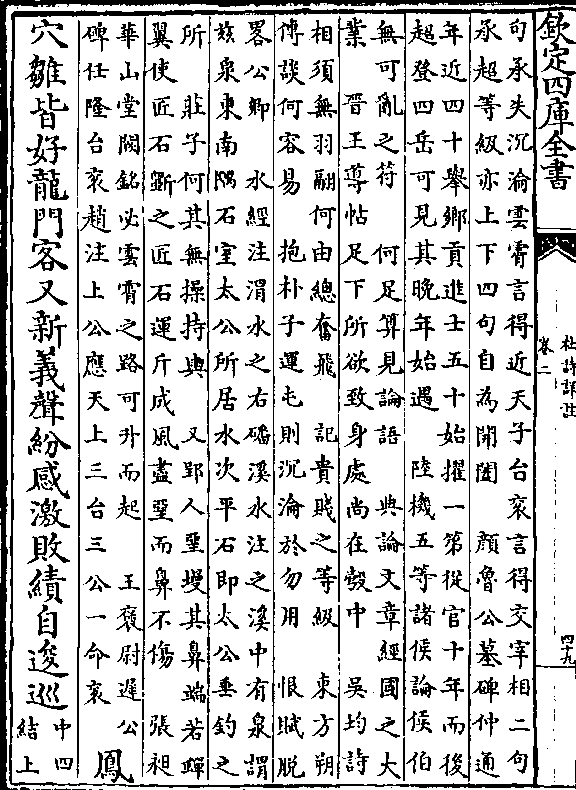 欽定四庫全書
杜詩詳註
卷二
四十九
句承失沉淪雲霄言得近天子台衮言得交宰相二句
承超等級亦上下四句自為開闔 顔魯公墓碑仲通
年近四十舉鄉貢進士五十始擢一第從官十年而後
超登四岳可見其晚年始遇 陸機五等諸侯論侯伯
無可亂之符 何足算見論語 典論文章經國之大
業 晉王導帖足下所欲致身處尚在彀中 吳均詩
相須無羽翮何由總奮飛 記貴賤之等級 東方朔
傳談何容易 抱朴子運屯則沉淪於勿用 恨賦脱
畧公卿 水經注渭水之右磻溪水注之溪中有泉謂
兹泉東南隅石室太公所居水次平石即太公垂釣之
所 莊子何其無操持與 又郢人堊墁其鼻端若蟬
翼使匠石斵之匠石運斤成風盡堊而鼻不傷 張昶
華山堂闕銘必雲霄之路可升而起 王襃尉遲公
碑任隆台衮趙注上公應天上三台三公一命衮 鳳
穴雛皆好龍門客又新義聲紛感激敗績自逡巡
中四
結上